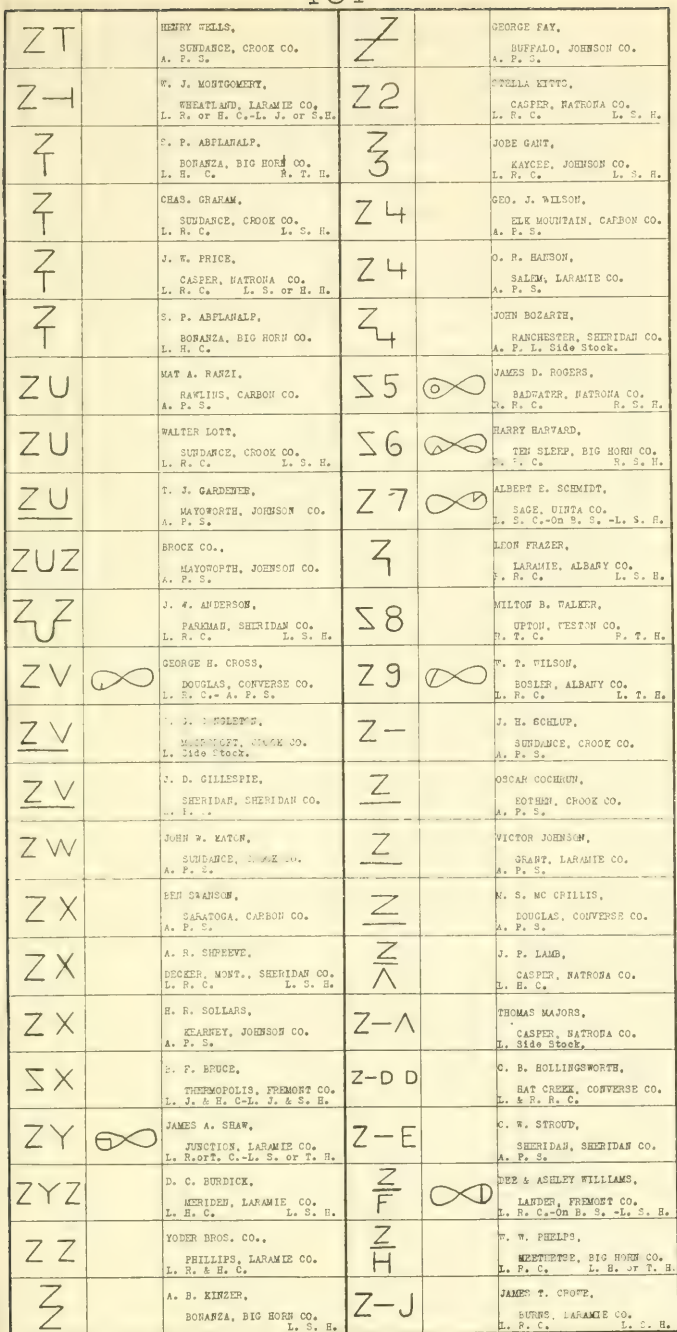 ZT
HENRY WELLS,
SUNDANCE, CROOK CO.
A. P. S.
W. J. MONTGOMERY,
WHEATLAND, LARAMIE CO.
L. R. or H. C.-L. J. or S.H.
Z
T
S. P. ABPLANALP,
BONANZA, BIG HORN CO.
L. H. C. R. T. H.
Z
T
CHAS. GRAHAM,
SUNDANCE, CROOK CO.
L. R. C. L. S. H.
Z
T
J. W. PRICE,
CASPER, NATRONA CO.
L. R. C. L. S. or H. H.
Z
T
S. P. ABPLANALP,
BONANZA, BIG HORN CO.
L. H. C.
ZU
MAT A. RANZI,
RAWLINS, CARBON CO.
A. P. S.
ZU
WALTER LOTT,
SUNDANCE, CROOK CO.
L. R. C. L. S. H.
ZU
T. J. GARDENER,
MAYOWORTH, JOHNSON CO.
A. P. S.
ZUZ
BROCK CO.,
MAYOWORTH, JOHNSON CO.
A. P. S.
ZUZ
J. W. ANDERSON,
PARKMAN, SHERIDAN CO.
L. R. C. L. S. H.
ZV
GEORGE H. CROSS,
DOUGLAS, CONVERSE CO.
L. R. C.- A. P. S.
ZV
CO.
L. Side Stock.
ZV
J. D. GILLESPIE,
SHERIDAN, SHERIDAN CO.
ZW
JOHN W. EATON,
SUNDANCE, CO.
A. P. S.
ZX
BEN SWANSON,
SARATOGA, CARBON CO.
A. P. S.
ZX
A. R. SHREEVE,
DECKER, MONT., SHERIDAN CO.
L. R. C. L. S. H.
ZX
H. R. SOLLARS,
KEARNEY, JOHNSON CO.
A. P. S.
ZX
F. BRUCE,
THERMOPOLIS, FREMONT CO.
L. J. & H. C-L. J. & S. H.
ZY
JAMES A. SHAW,
JUNCTION, LARAMIE CO.
L. R.orT. C.-L. S. or T. H.
ZYZ
D. C. BURDICK,
MERIDEN, LARAMIE CO.
L. H. C. L. S. H.
ZZ
YODER BROS. CO.,
PHILLIPS, LARAMIE CO.
L. R. & H. C.
Z
Z
A. B. KINZER,
BONANZA, BIG HORN CO.
L. S. H.
Z
GEORGE FAY,
BUFFALO, JOHNSON CO.
A. P. S.
Z2
STELLA KITTS,
CASPER, NATRONA CO.
L. R. C. L. S. H.
Z
3
JOBE GANT,
KAYCEE, JOHNSON CO.
L. R. C. L. S. H.
Z4
GEO. J. WILSON,
ELK MOUNTAIN, CARBON CO.
A. P. S.
Z4
O. R. HANSON,
SALEM, LARAMIE CO.
A. P. S.
Z
4
JOHN BOZARTH,
RANCHESTER, SHERIDAN CO.
A. P. L. Side Stock.
Z5
JAMES D. ROGERS,
BADWATER, NATRONA CO.
R. R. C. R. S. H.
Z6
HARRY HARVARD,
TEN SLEEP, BIG HORN CO.
C. R. S. H.
Z7
ALBERT E. SCHMIDT,
SAGE, UINTA CO.
L. S. C.-On B. S. -L. S. H.
Z
1
LEON FRAZER,
LARAMIE, ALBANY CO.
R. C. L. S. H.
Z8
MILTON B. WALKER,
UPTON, WESTON CO.
R. T. C. R. T. H.
Z9
W. T. WILSON,
BOSLER, ALBANY CO.
L. R. C. L. T. H.
Z-
J. H. SCHLUP,
SUNDANCE, CROOK CO.
A. P. S.
Z
OSCAR COCHRUN,
EOTHEN, CROOK CO.
A. P. S.
Z
VICTOR JOHNSON,
GRANT, LARAMIE CO.
A. P. S.
Z
M. S. MC CRILLIS,
DOUGLAS, CONVERSE CO.
A. P. S.
Z
Λ
J. P. LAMB,
CASPER, NATRONA CO.
L. H. C.
Z-Λ
THOMAS MAJORS,
CASPER, NATRONA CO.
L. Side Stock.
Z-D D
C. B. HOLLINGSWORTH,
HAT CREEK, CONVERSE CO.
L. & R. R. C.
Z-E
C. W. STROUD,
SHERIDAN, SHERIDAN CO.
A. P. S.
Z
F
DEE & ASHLEY WILLIAMS,
LANDER, FREMONT CO.
L. R. C.-On B. S. -L. S. H.
Z
H
W. W. PHELPS,
MEETEETSE, BIG HORN CO.
L. R. C. L. H. or T. H.
Z-J
JAMES T. CROWE,
BURNS, LARAMIE CO.
L. R. C. L. S. H.